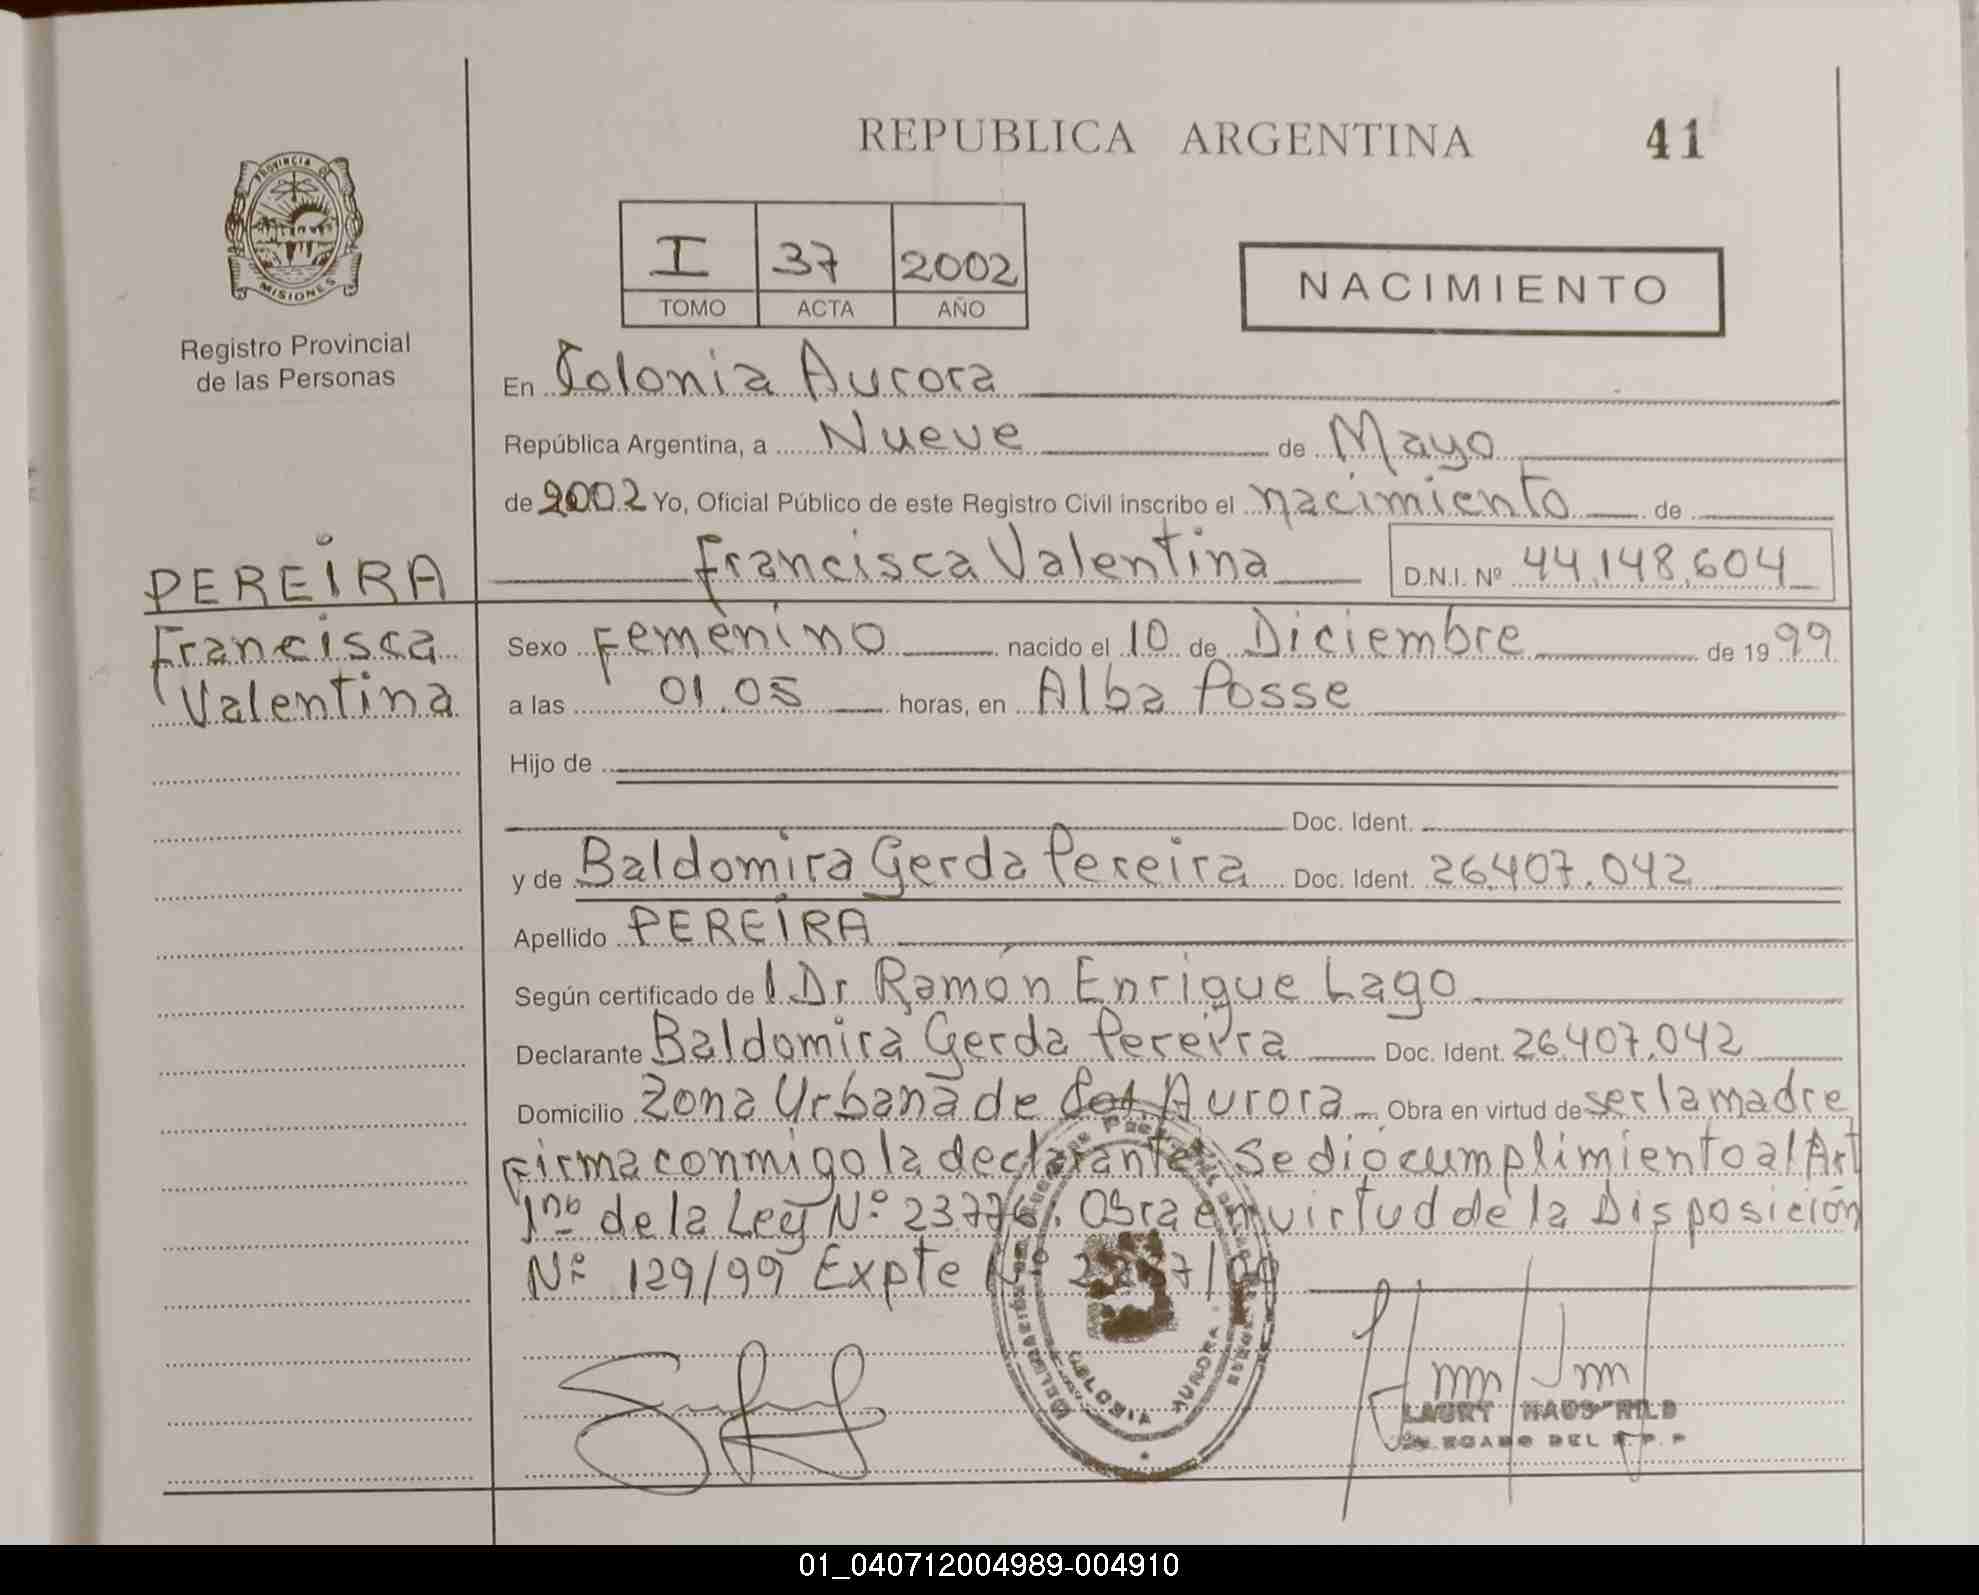 REPUBLICA ARGENTINA 41
PROVINCIA DE
MISIONES
Registro Provincial
de las Personas
I 37 2002
TOMO ACTA AÑO
NACIMIENTO
En Colonia Aurora
República Argentina, a Nueve de Mayo
de 2002 Yo, Oficial Público de este Registro Civil inscribo el nacimiento de
Francisca Valentina D.N.I. Nº 44.148.604
PEREIRA
Francisca
Valentina
Sexo Femenino nacido el 10 de Diciembre de 1999
a las 01.05 horas, en Alba Posse
Hijo de
Doc. Ident.
y de Baldomira Gerda Pereira Doc. Ident. 26.407.042
Apellido PEREIRA
Según certificado de l Dr Ramón Enrique Lago
Declarante Baldomira Gerda Pereira Doc. Ident. 26.407.042
Domicilio Zona Urbana de Col. Aurora Obra en virtud de ser la madre
Firma conmigo la declarante. Se dio cumplimiento al Art
1ro de la Ley Nº 23.776. Obra en virtud de la Disposición
Nº 129/99 Expte Nº
COLONIA AURORA
LAURY
DELEGADO DEL R.P.P
01_040712004989-004910